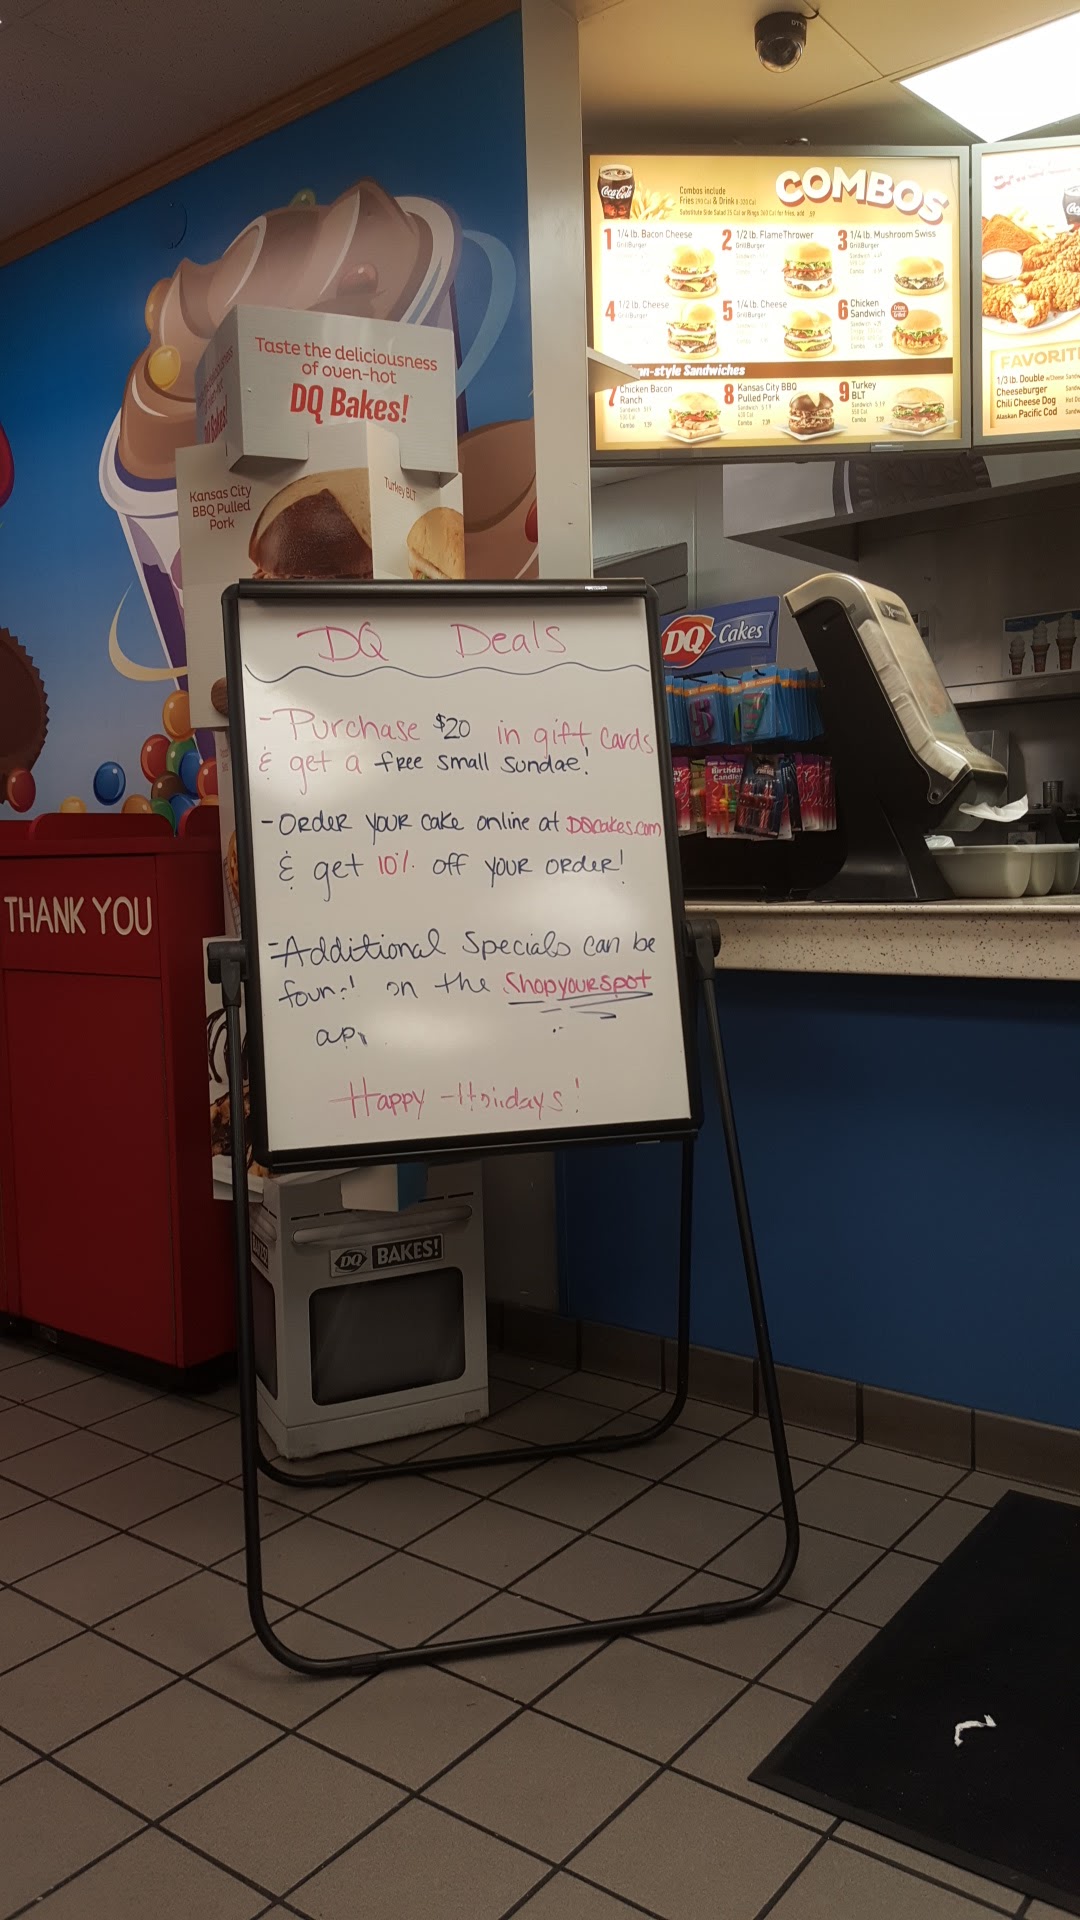 COMBOS
Combos include
Fries 290 Cal & Drink
Coca-Cola
1 1/4 lb. Bacon Cheese
GrillBurger
2 1/2 lb. FlameThrower
GrillBurger
3 1/4 lb. Mushroom Swiss
GrillBurger
4 1/2 lb. Cheese
GrillBurger
5 1/4 lb. Cheese
GrillBurger
6 Chicken
Sandwich
-style Sandwiches
7 Chicken Bacon
Ranch
8 Kansas City BBQ
Pulled Pork
9 Turkey
BLT
FAVORIT
1/3 lb. Double
Cheeseburger
Chili Cheese Dog
Alaskan Pacific Cod
Taste the deliciousness
of oven-hot
DQ Bakes!
Kansas City
BBQ Pulled
Pork
Turkey BLT
DQ Cakes
Birthday
Candles
THANK YOU
DQ Deals
- Purchase $20 in gift cards
& get a free small sundae!
- Order your cake online at DQcakes.com
& get 10% off your order!
- Additional Specials can be
on the Shopyourspot
Happy Holidays!
DQ BAKES!